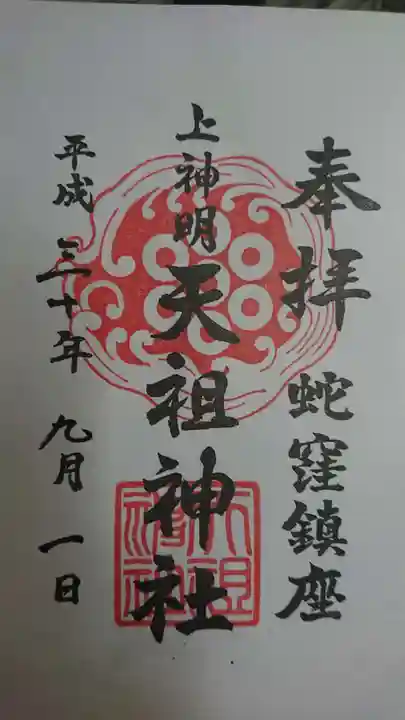 奉拝 蛇窪鎮座
上神明
天祖神社
平成三十年 九月 一日
天祖神社